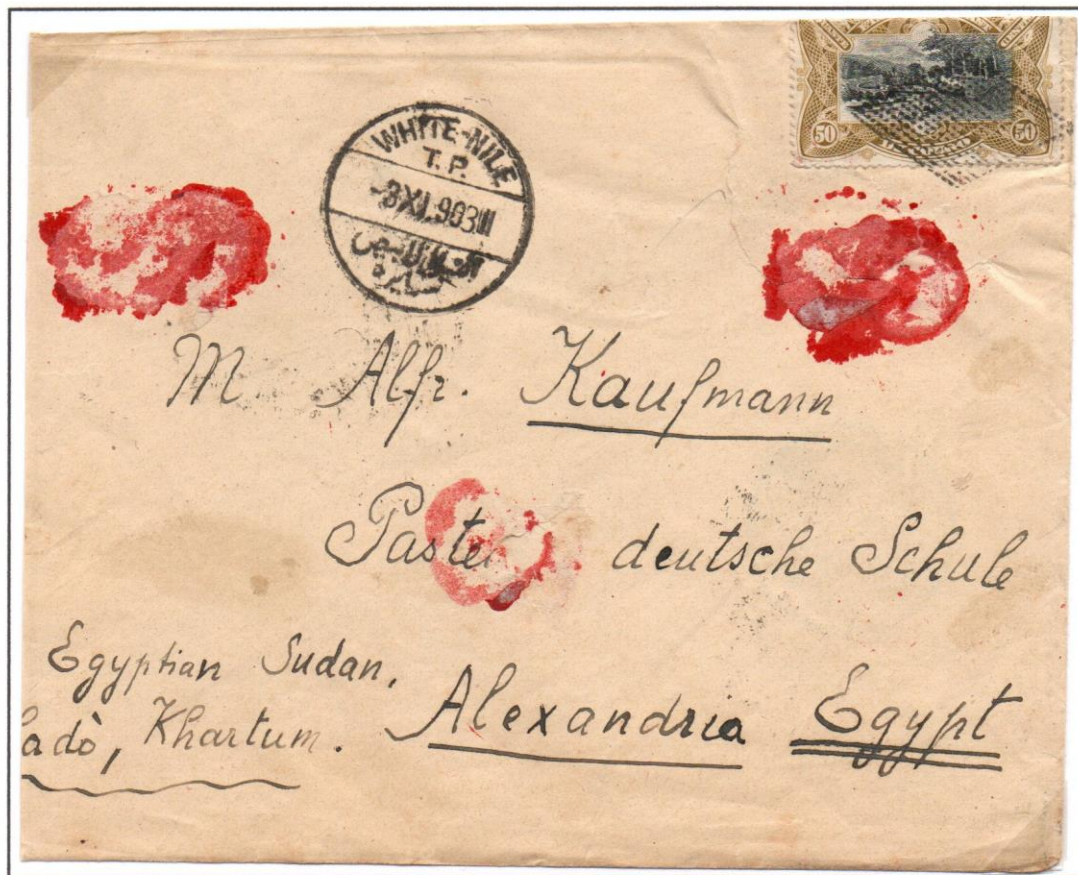 50 50
WHITE-NILE
T.P.
-3 XI. 903
M. Alfr. Kaufmann
deutsche Schule
Egyptian Sudan,
adò, Khartum.
Alexandria Egypt